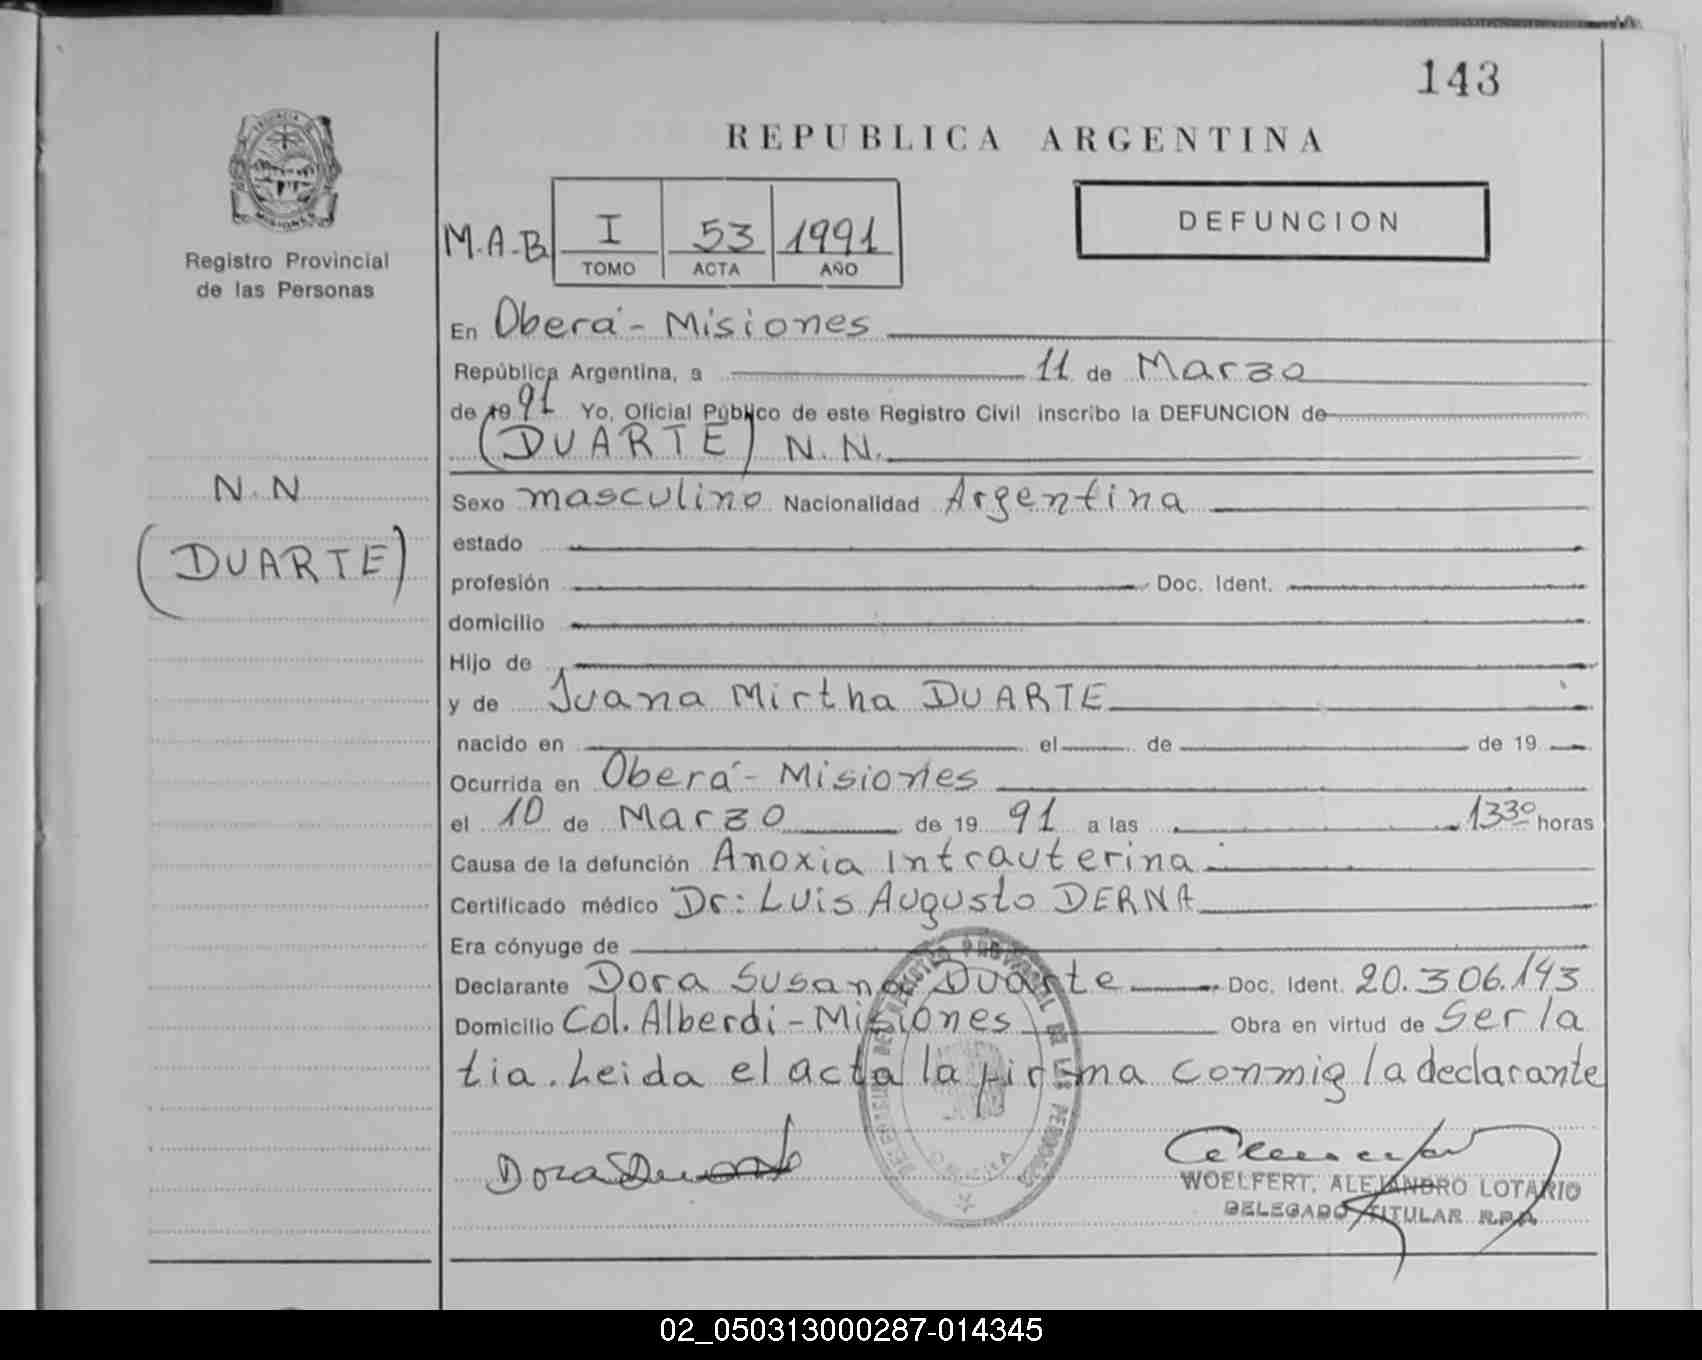 143
REPUBLICA ARGENTINA
DEFUNCION
M.A.B. I 53 1991
TOMO ACTA AÑO
PROVINCIA DE
MISIONES
Registro Provincial
de las Personas
En Oberá - Misiones
República Argentina, a 11 de Marzo
de 1991 Yo, Oficial Público de este Registro Civil inscribo la DEFUNCION de
(DUARTE) N.N.
N.N
(DUARTE)
Sexo masculino Nacionalidad Argentina
estado
profesión Doc. Ident.
domicilio
Hijo de
y de Juana Mirtha DUARTE
nacido en el de de 19
Ocurrida en Oberá - Misiones
el 10 de Marzo de 1991 a las 1330 horas
Causa de la defunción Anoxia Intrauterina
Certificado médico Dr: Luis Augusto DERNA
Era cónyuge de
Declarante Dora Susana Duarte Doc. Ident. 20.306.143
Domicilio Col. Alberdi - Misiones Obra en virtud de Ser la
tia. Leida el acta la firma conmig la declarante
REGISTRO PROVINCIAL DE LAS PERSONAS
Dora S Duarte
WOELFERT, ALEJANDRO LOTARIO
DELEGADO TITULAR R.P.P.
02_050313000287-014345